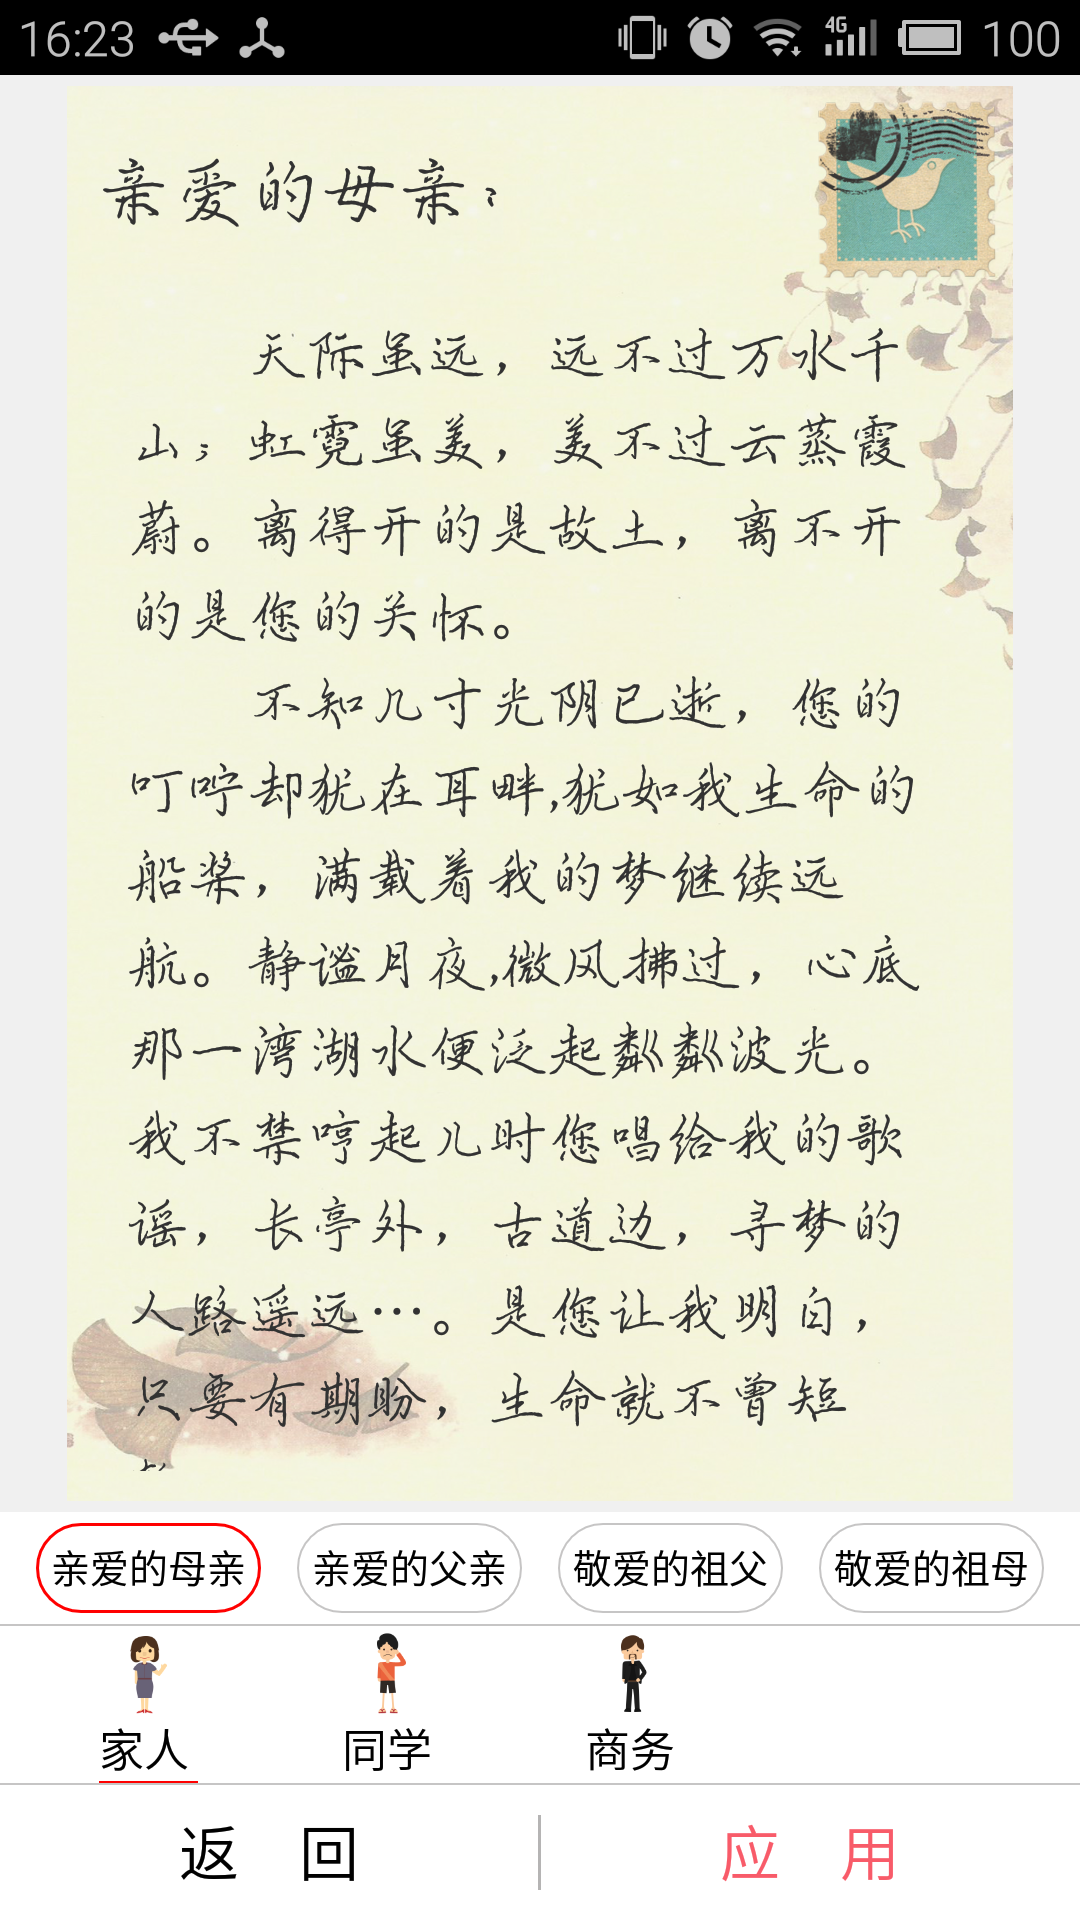 16:23
4G
100
亲爱的母亲：
天际虽远，远不过万水千
山；虹霓虽美，美不过云蒸霞
蔚。离得开的是故土，离不开
的是您的关怀。
不知几寸光阴已逝，您的
叮咛却犹在耳畔,犹如我生命的
船桨，满载着我的梦继续远
航。静谧月夜,微风拂过，心底
那一湾湖水便泛起粼粼波光。
我不禁哼起儿时您唱给我的歌
谣，长亭外，古道边，寻梦的
人路遥远…。是您让我明白，
只要有期盼，生命就不曾短
亲爱的母亲
亲爱的父亲
敬爱的祖父
敬爱的祖母
家人
同学
商务
返 回
应 用